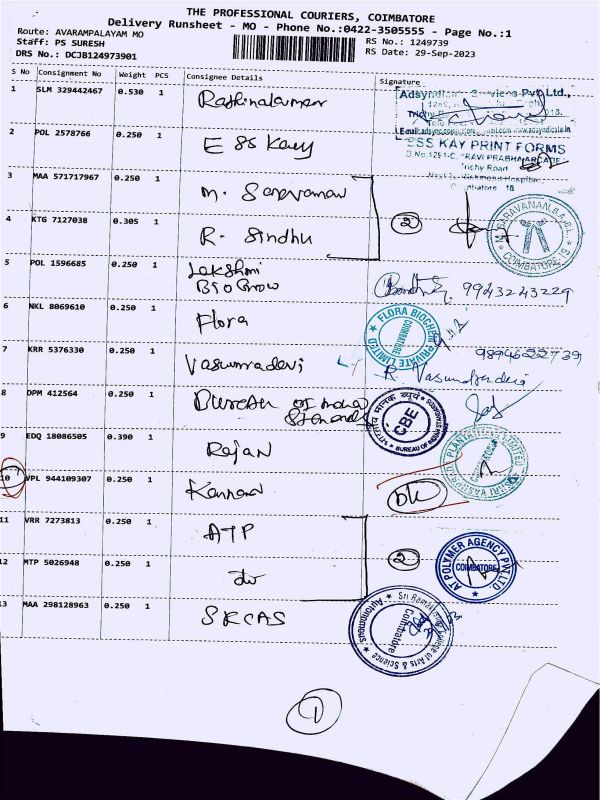 THE PROFESSIONAL COURIERS, COIMBATORE
Delivery Runsheet - MO - Phone No.:0422-3505555 - Page No.:1
Route: AVARAMPALAYAM MO
Staff: PS SURESH
DRS No.: DCJB124973901
RS No.: 1249739
RS Date: 29-Sep-2023
S No Consignment No Weight PCS Consignee Details Signature
1 SLM 329442467 0.530 1
Adsyndicate Services Pvt Ltd.,
2 POL 2578766 0.250 1 E SS Kay
ESS KAY PRINT FORMS
Trichy Road
Coimbatore 18
3 MAA 571717967 0.250 1 M. Saravanan
4 KTG 7127038 0.305 1 R. Sindhu
2
COIMBATORE
5 POL 1596685 0.250 1 Lakshmi
9943243229
6 NKL 8069610 0.250 1 Flora
FLORA BIOCHEM PRIVATE LIMITED
COIMBATORE
9894622739
7 KRR 5376330 0.250 1 Vasumradevi
8 DPM 412564 0.250 1 Bureau of India
Standards
भारतीय मानक ब्यूरो
CBE
BUREAU OF INDIAN STANDARDS
9 EDQ 18086505 0.390 1 Rajan
10 VPL 944109307 0.250 1 Kannan
11 VRR 7273813 0.250 1 ATP
12 MTP 5026948 0.250 1 do
2
AT POLYMER AGENCY PVT LTD
COIMBATORE
13 MAA 298128963 0.250 1 SRCAS
Sri Ramakrishna College of Arts & Science
Autonomous
Coimbatore
1